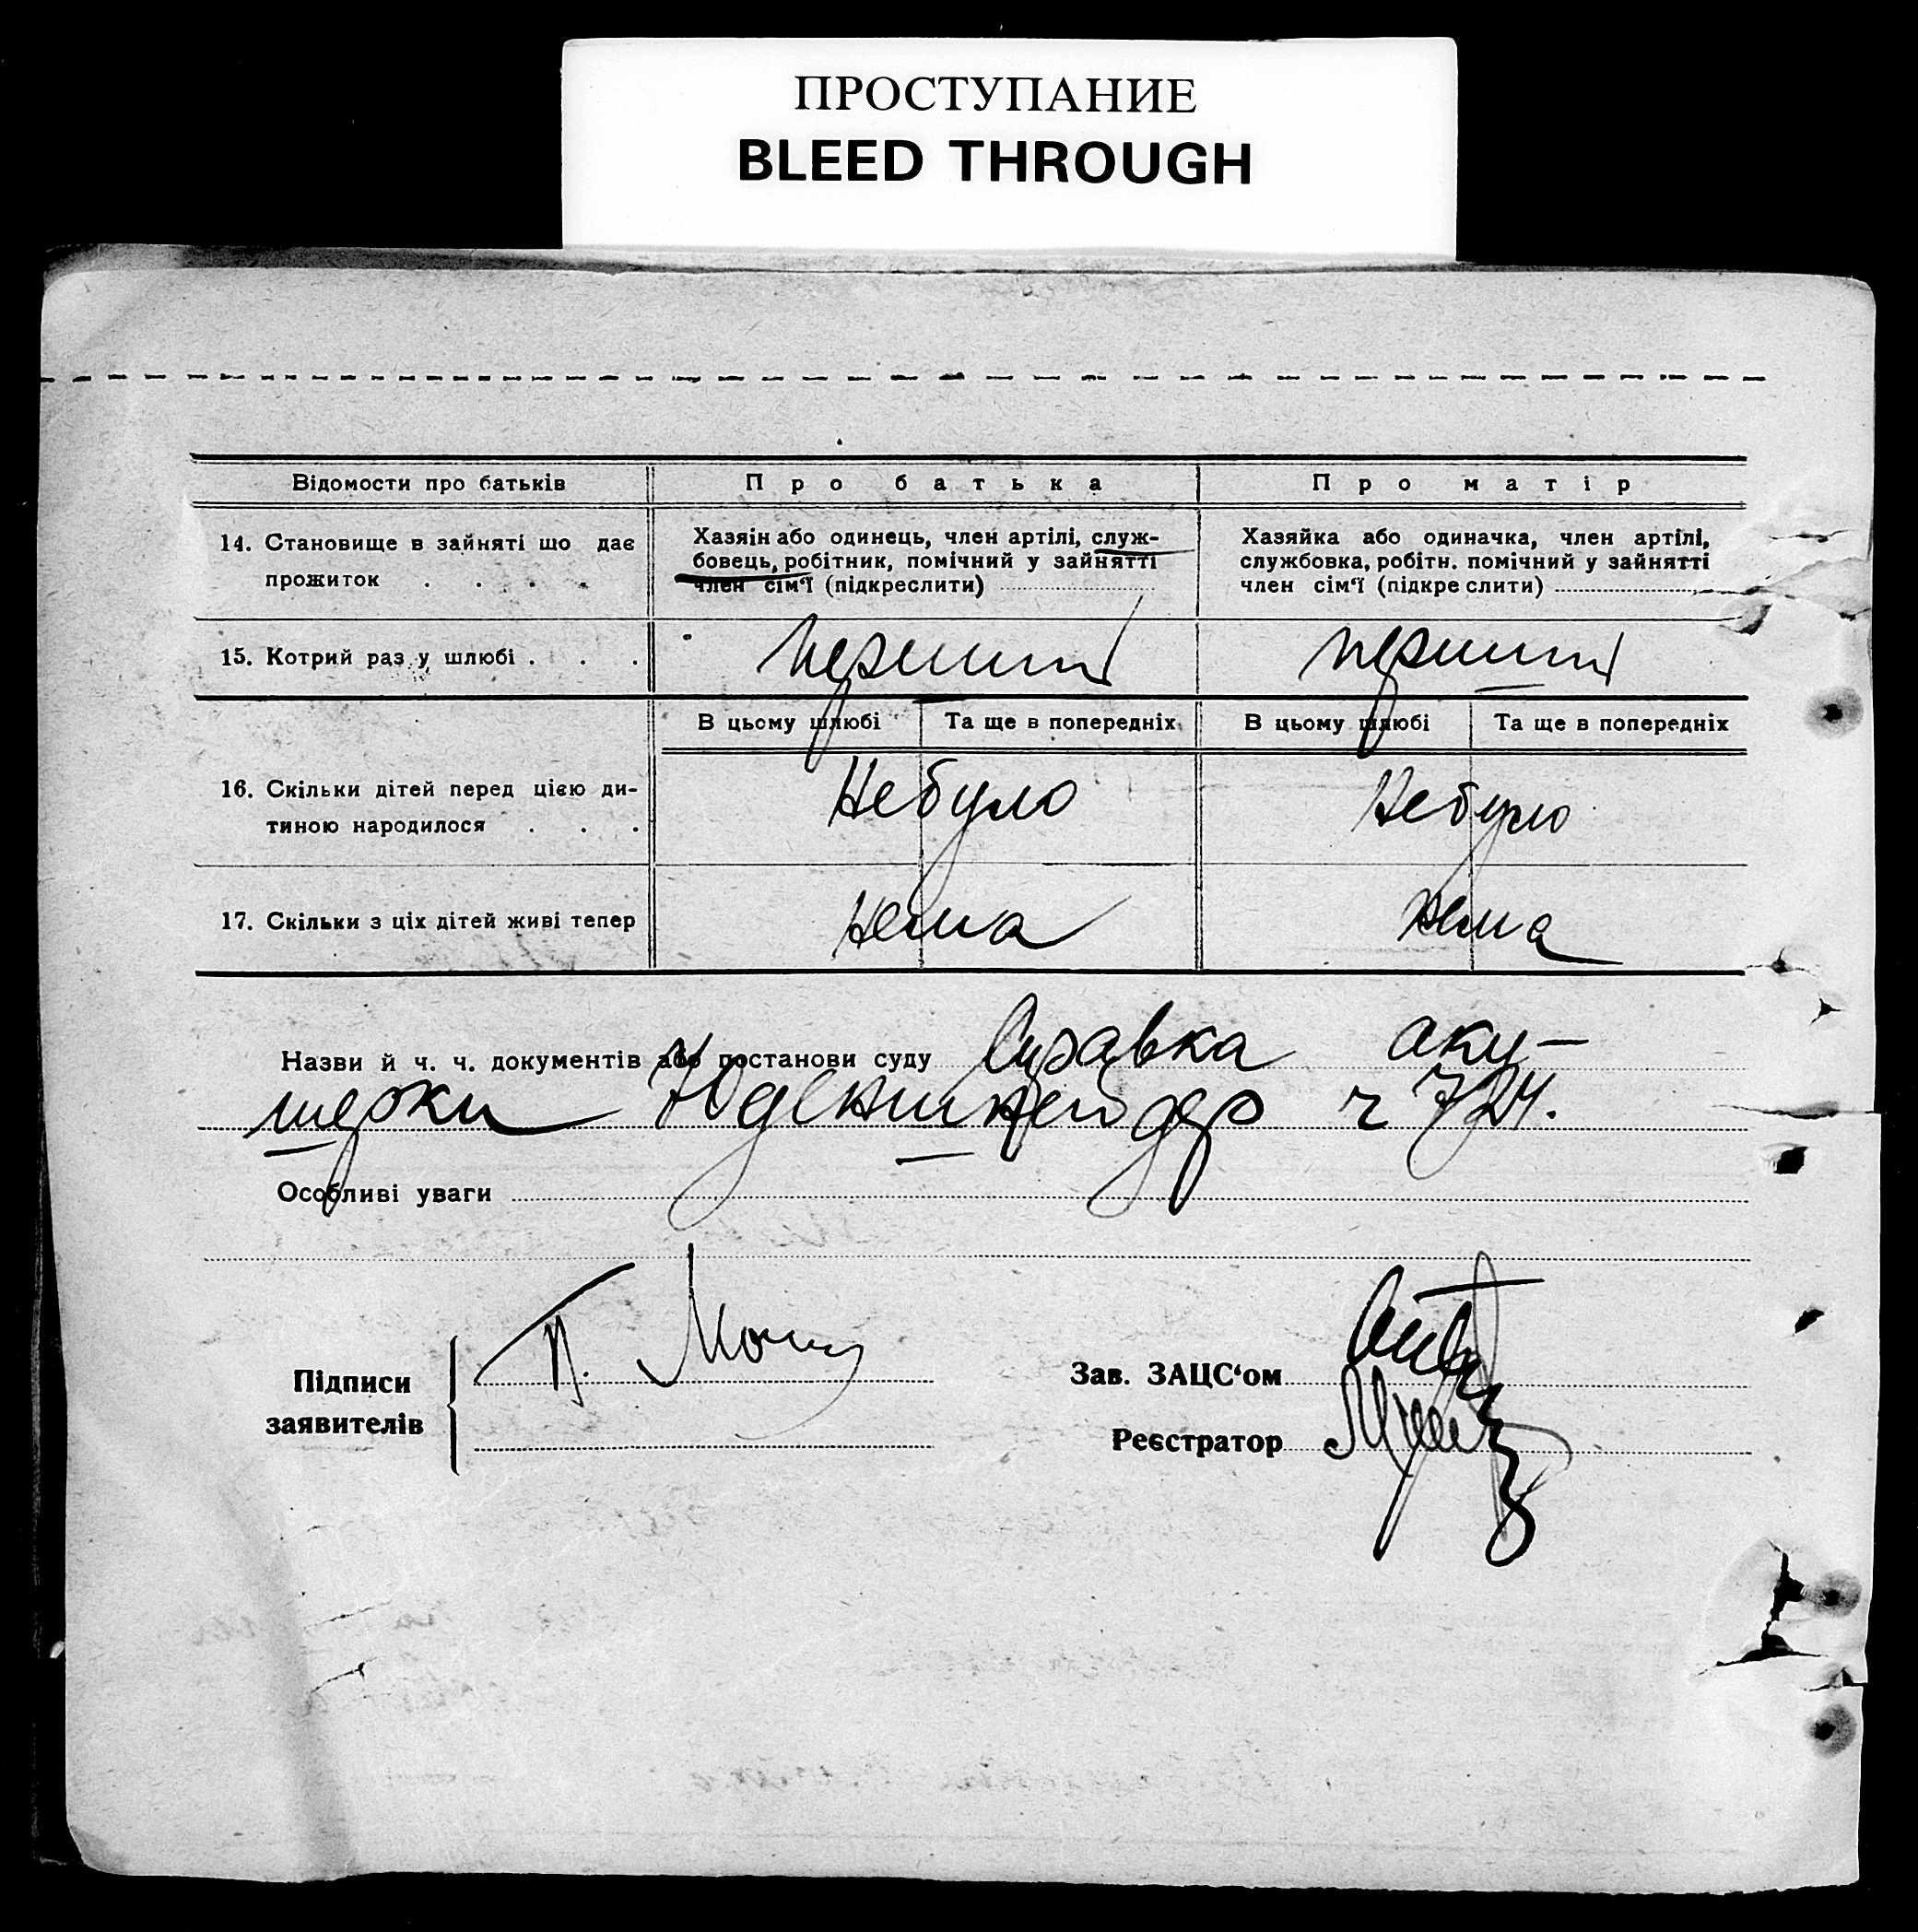 ПРОСТУПАНИЕ
BLEED THROUGH
Відомости про батьків Про батька Про матір
14. Становище в зайняті що дає
прожиток . . . .
Хазяін або одинець, член артілі, служ-
бовець, робітник, помічний у зайнятті
член сім‘ї (підкреслити)
Хазяйка або одиначка, член артілі,
службовка, робітн. помічний у зайнятті
член сім‘ї (підкреслити)
15. Котрий раз у шлюбі . . . перший перший
В цьому шлюбі Та ще в попередніх В цьому шлюбі Та ще в попередніх
16. Скільки дітей перед цією ди-
тиною народилося . . .
Небуло Небуло
17. Скільки з ціх дітей живі тепер нема нема
Назви й ч. ч. документів або постанови суду Справка аку-
шерки ч 724.
Особливі уваги
Підписи
заявителів
Зав. ЗАЦС‘ом
Реєстратор